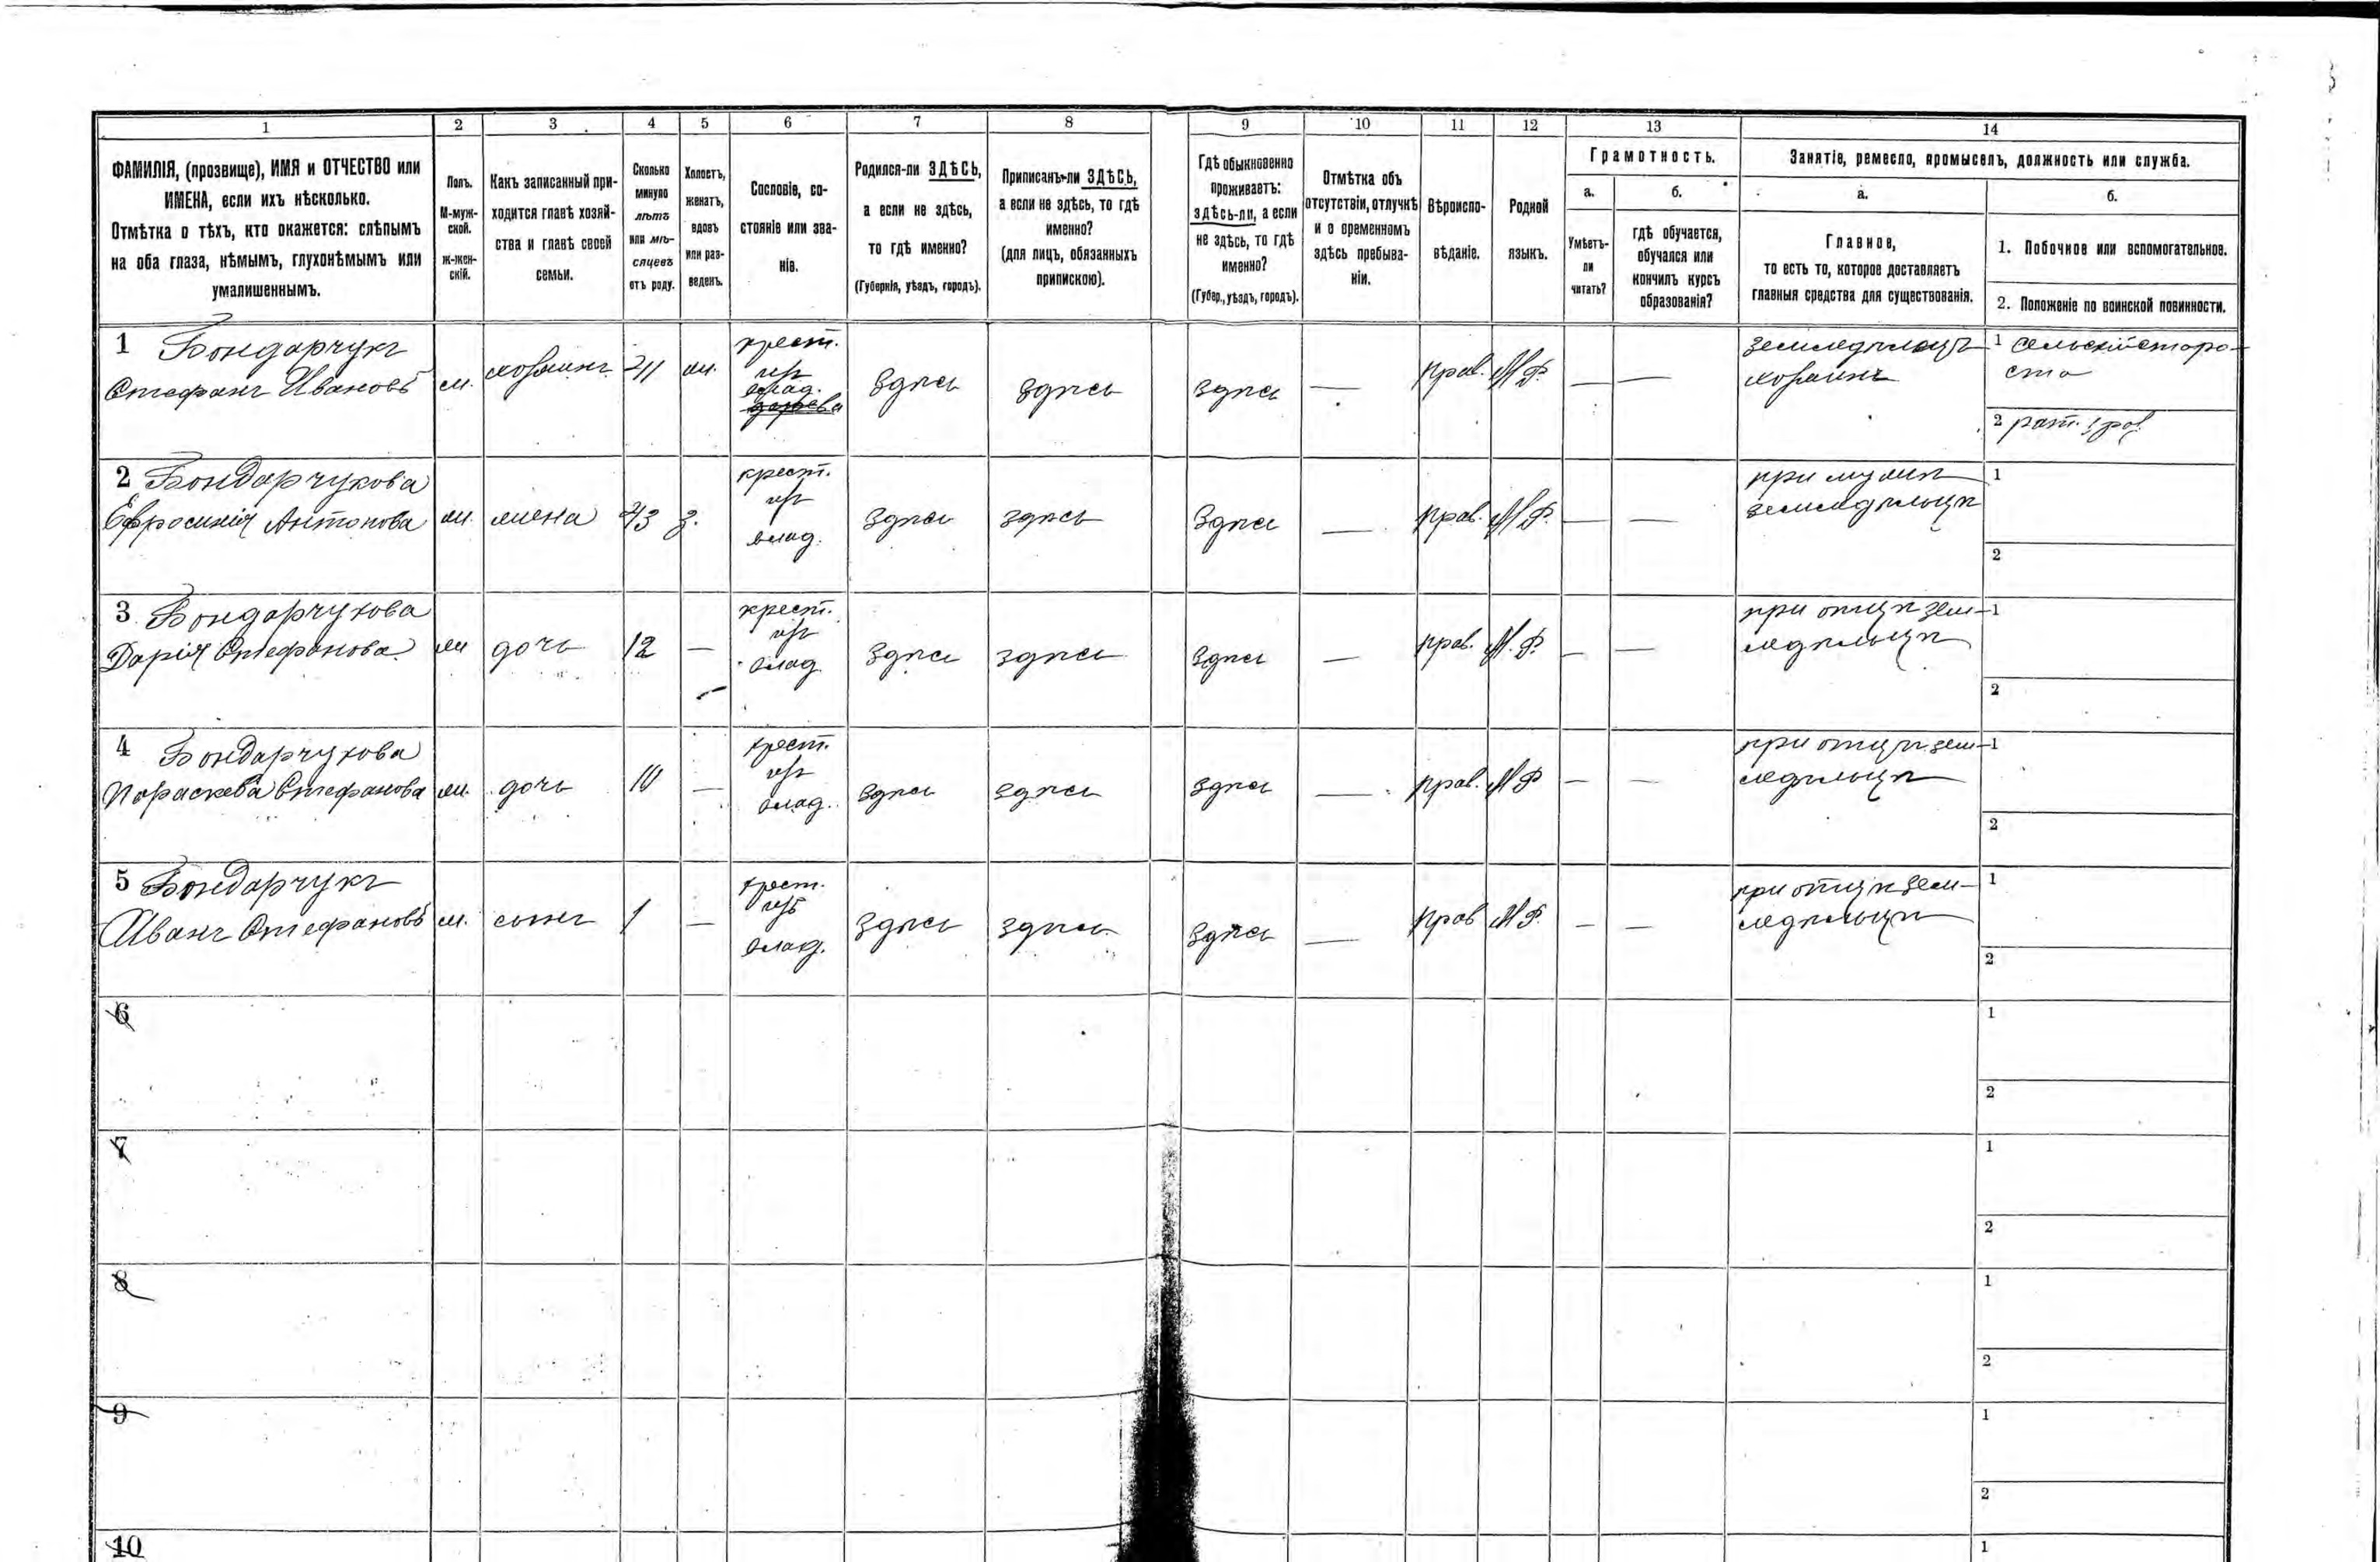 1 2 3 4 5 6 7 8 9 10 11 12 13 14
ФАМИЛІЯ, (прозвище), ИМЯ и ОТЧЕСТВО или
ИМЕНА, если ихъ нѣсколько.
Отмѣтка о тѣхъ, кто окажется: слѣпымъ
на оба глаза, нѣмымъ, глухонѣмымъ или
умалишеннымъ.
Полъ.
М-муж-
ской.
ж-жен-
скій.
Какъ записанный при-
ходится главѣ хозяй-
ства и главѣ своей
семьи.
Сколько
минуло
лѣтъ
или мѣ-
сяцевъ
отъ роду.
Холостъ,
женатъ,
вдовъ
или раз-
веденъ.
Сословіе, со-
стояніе или зва-
ніе.
Родился-ли ЗДѢСЬ,
а если не здѣсь,
то гдѣ именно?
(Губернія, уѣздъ, городъ).
Приписанъ-ли ЗДѢСЬ,
а если не здѣсь, то гдѣ
именно?
(для лицъ, обязанныхъ
припискою).
Гдѣ обыкновенно
проживаетъ:
здѣсь-ли, а если
не здѣсь, то гдѣ
именно?
(Губер., уѣздъ, городъ).
Отмѣтка объ
отсутствіи, отлучкѣ
и о временномъ
здѣсь пребыва-
ніи.
Вѣроиспо-
вѣданіе.
Родной
языкъ.
Грамотность.
а.
Умѣетъ-
ли
читать?
б.
гдѣ обучается,
обучался или
кончилъ курсъ
образованія?
Занятіе, ремесло, промыселъ, должность или служба.
а.
Главное,
то есть то, которое доставляетъ
главныя средства для существованія.
б.
1. Побочное или вспомогательное.
2. Положеніе по воинской повинности.
1 Бондарчукъ
Стефанъ Ивановъ
м.
хозяинъ
41
ж.
крест.
изъ
влад.
здѣсь
здѣсь
здѣсь
—
прав.
М.Р.
—
—
земледѣлецъ
хозяинъ
1 сельскій старо-
ста
2 рат. 1 раз.
2 Бондарчукова
Ефросинія Антонова
ж.
жена
43
з.
крест.
изъ
влад.
здѣсь
здѣсь
здѣсь
—
прав.
М.Р.
—
—
при мужѣ
земледѣльцѣ
1
2
3 Бондарчукова
Дарія Стефанова
ж
дочь
12
—
крест.
изъ
влад.
здѣсь
здѣсь
здѣсь
—
прав.
М.Р.
—
—
при отцѣ зем-
ледѣльцѣ
1
2
4 Бондарчукова
Параскева Стефанова
ж.
дочь
10
—
крест.
изъ
влад.
здѣсь
здѣсь
здѣсь
—
прав.
М.Р
—
—
при отцѣ зем-
ледѣльцѣ
1
2
5 Бондарчукъ
Иванъ Стефановъ
м.
сынъ
1
—
крест.
изъ
влад.
здѣсь
здѣсь
здѣсь
—
прав
М.Р.
—
—
при отцѣ зем-
ледѣльцѣ
1
2
6
1
2
7
1
2
8
1
2
9
1
2
10
1